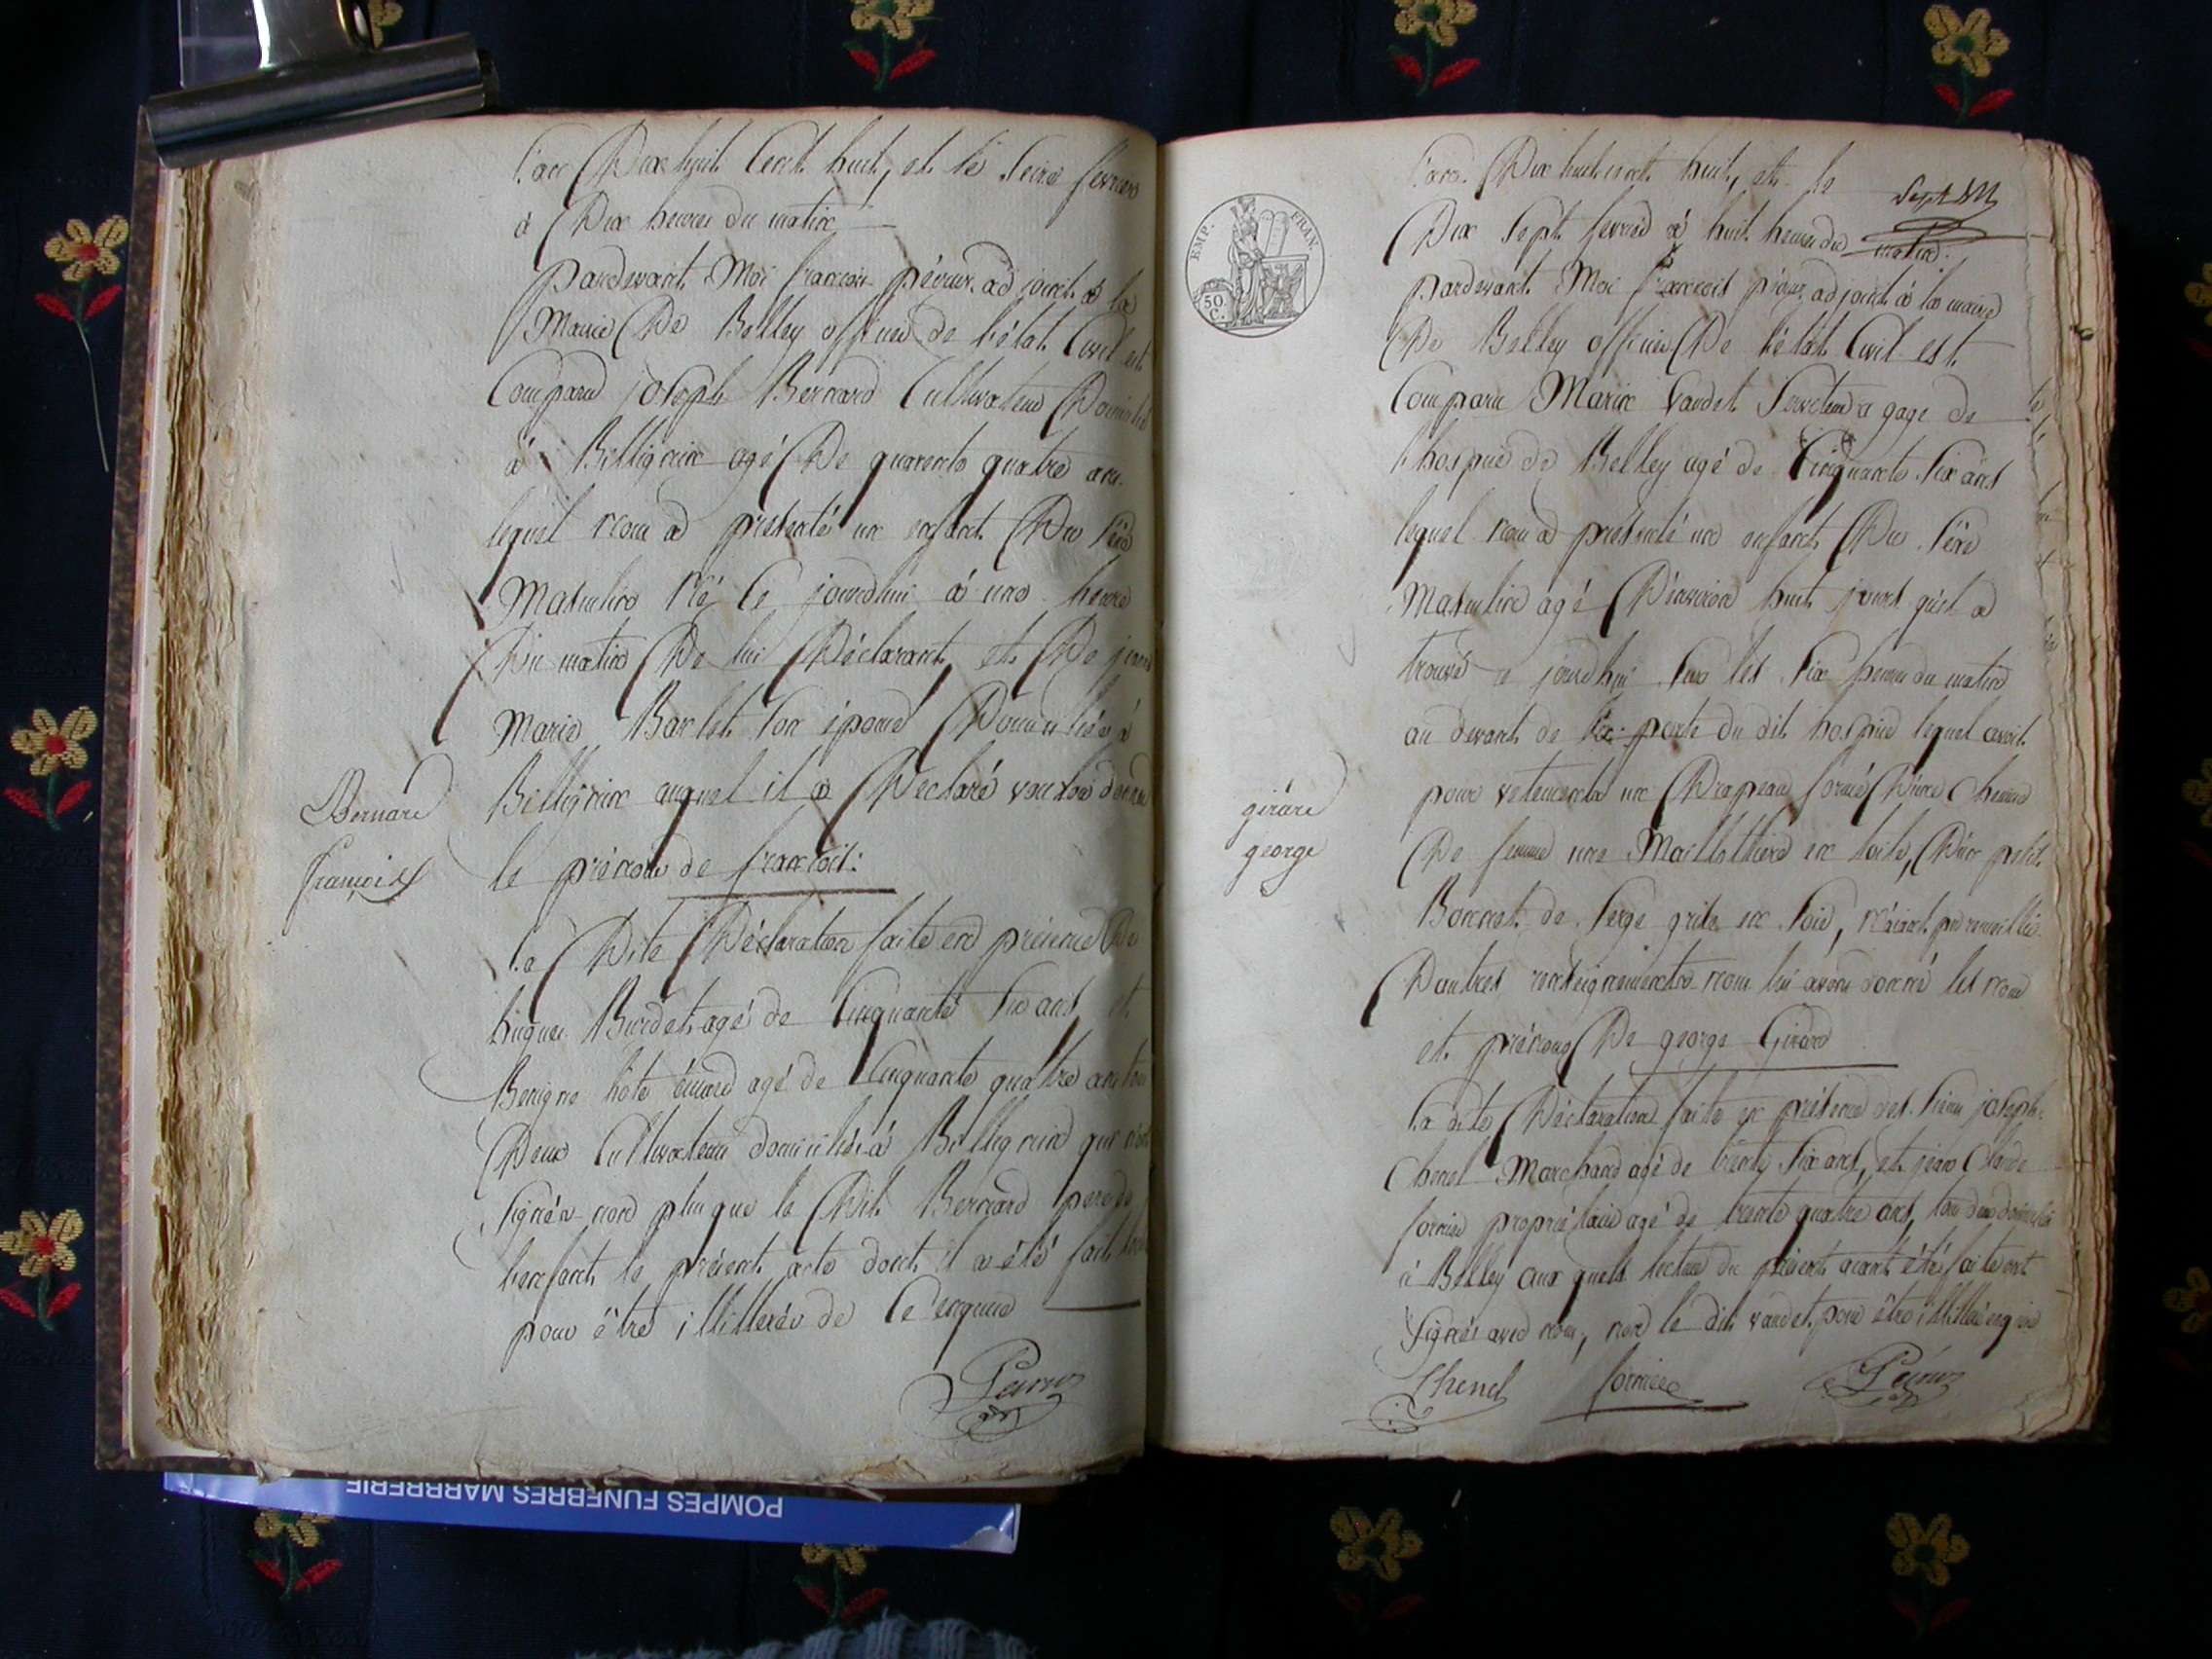 L'an Dix huit Cent huit, et le Seize fevrier
à Dix heures du matin
pardevant Moi françois adjoint à la
Mairie De Belley officier de l'état Civil est
Comparu joseph Bernard Cultivateur Domicilié
à Billignin agé De quarente quatre ans
lequel nous a presenté un enfant Du Séxe
Masculin Né Ce jourdhui à une heure
Du matin De lui Déclarant, et De jeanne
Marie Barlet son épouse Domiciliés à
Billignin auquel il a Déclaré vouloir donner
le prénom de françois:
Bernard
françois
La Dite Déclaration faite en présence De
hugues Burdet agé de Cinquante Six ans et
Benigne hôte agé de Cinquante quatre ans tous
Deux Cultivateurs domiciliés à Billignin qui n'ont
Signés non plus que le Dit Bernard pere de
l'enfant le présent acte dont il a été fait
pour être illitterés de Ce enquis
EMP. FRAN.
50 C.
L'an Dix huit cent huit, et le
Dix Sept fevrier à huit heures du matin.
pardevant Moi françois adjoint à la mairie
De Belley officier De l'état Civil est
Comparu Marin Vaudet Serviteur a gage de
l'hospice de Belley agé de Cinquante Six ans
lequel nous a présenté un enfant Du Séxe
Masculin agé D'environ huit jours qu'il a
trouvé ce jourdhui Sur les Six heures du matin
au devant de la porte du dit hospice lequel avoit
pour vetements un Drapeau formé D'une Chemise
De femme une Maillottiere en toile, D'un petit
Bonnet de Serge grise en Soie, n'aiant pu recueillir
D'autres renseignements nous lui avons donné les nom
et prénoms De george Girard
girard
george
La dite Déclaration faite en présence des Sieurs joseph
Chenel Marchand agé de trente Six ans, et jean Claude
fornier propriétaire agé de trente quatre ans, tous deux domiciliés
à Belley aux quels lecture du présent aiant été faite ont
Signés avec nous, non le dit vaudet pour être illitteré enquis
Chenel fornier
POMPES FUNEBRES MARBRERIE